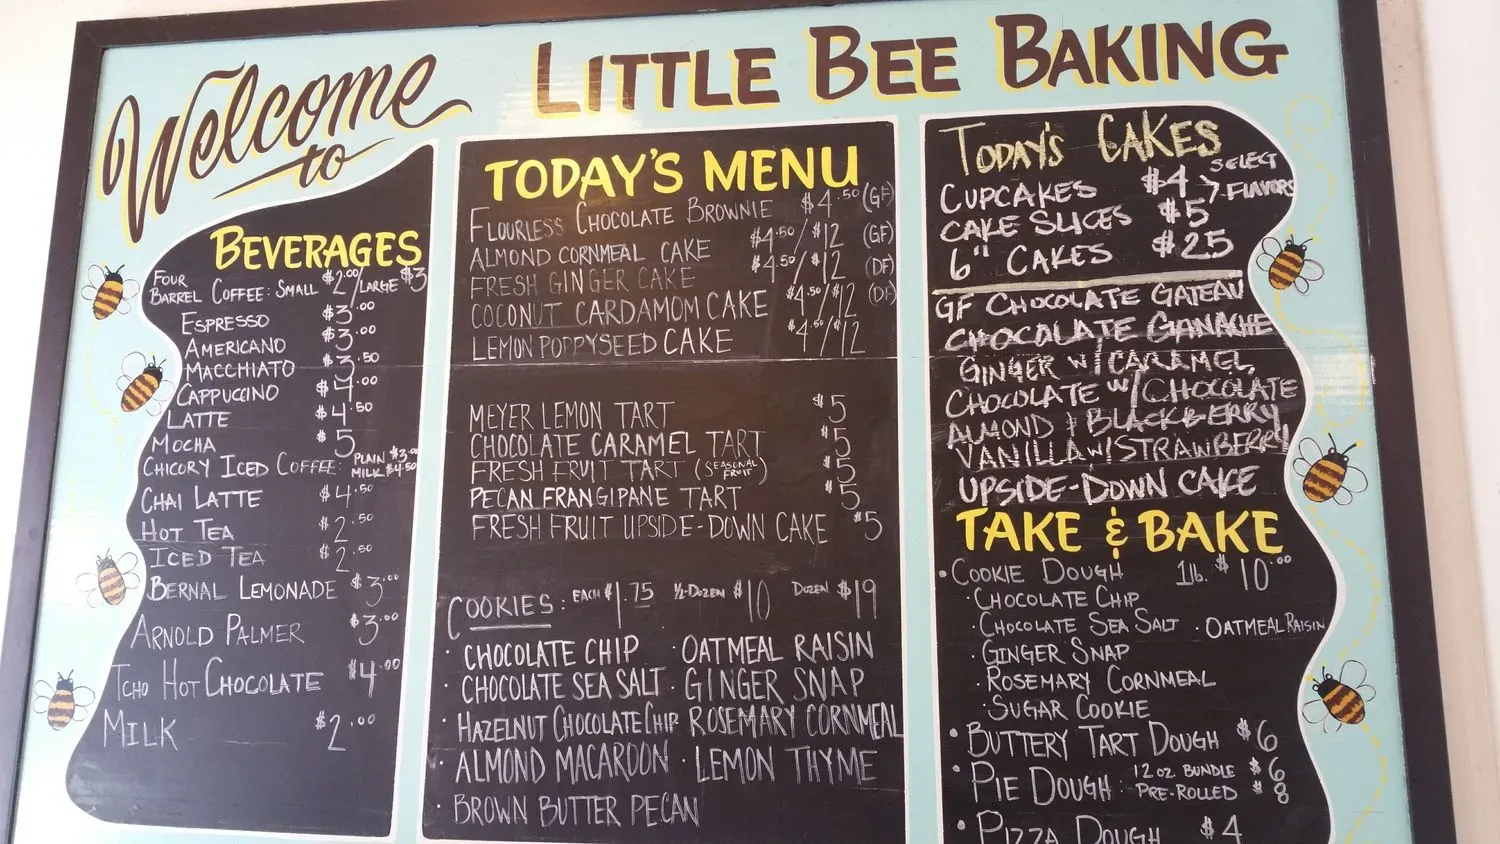 Welcome
to
LITTLE BEE BAKING
BEVERAGES
FOUR
BARREL COFFEE: SMALL $2.00/LARGE $3
ESPRESSO $3.00
AMERICANO $3.00
MACCHIATO $3.50
CAPPUCCINO $4.00
LATTE $4.50
MOCHA $5
CHICORY ICED COFFEE: PLAIN $3.00
MILK $4.50
CHAI LATTE $4.50
HOT TEA $2.50
ICED TEA $2.50
BERNAL LEMONADE $3.00
ARNOLD PALMER $3.00
TCHO HOT CHOCOLATE $4.00
MILK $2.00
TODAY'S MENU
FLOURLESS CHOCOLATE BROWNIE $4.50 (GF)
ALMOND CORNMEAL CAKE $4.50/$12 (GF)
FRESH GINGER CAKE $4.50/$12 (DF)
COCONUT CARDAMOM CAKE $4.50/$12 (DF)
LEMON POPPYSEED CAKE $4.50/$12
MEYER LEMON TART $5
CHOCOLATE CARAMEL TART $5
FRESH FRUIT TART (SEASONAL FRUIT) $5
PECAN FRANGIPANE TART $5
FRESH FRUIT UPSIDE-DOWN CAKE $5
COOKIES: EACH $1.75 ½-DOZEN $10 DOZEN $19
· CHOCOLATE CHIP · OATMEAL RAISIN
· CHOCOLATE SEA SALT · GINGER SNAP
· HAZELNUT CHOCOLATE CHIP · ROSEMARY CORNMEAL
· ALMOND MACAROON · LEMON THYME
· BROWN BUTTER PECAN
TODAY'S CAKES
CUPCAKES $4 > SELECT
FLAVORS
CAKE SLICES $5
6" CAKES $25
GF CHOCOLATE GATEAU
CHOCOLATE GANACHE
GINGER W/ CARAMEL
CHOCOLATE W/ CHOCOLATE
ALMOND & BLACKBERRY
VANILLA W/ STRAWBERRY
UPSIDE-DOWN CAKE
TAKE & BAKE
• COOKIE DOUGH 1lb. $10.00
· CHOCOLATE CHIP
· CHOCOLATE SEA SALT · OATMEAL RAISIN
· GINGER SNAP
· ROSEMARY CORNMEAL
· SUGAR COOKIE
• BUTTERY TART DOUGH $6
• PIE DOUGH · 12 OZ BUNDLE $6
PRE-ROLLED $8
• PIZZA DOUGH $4